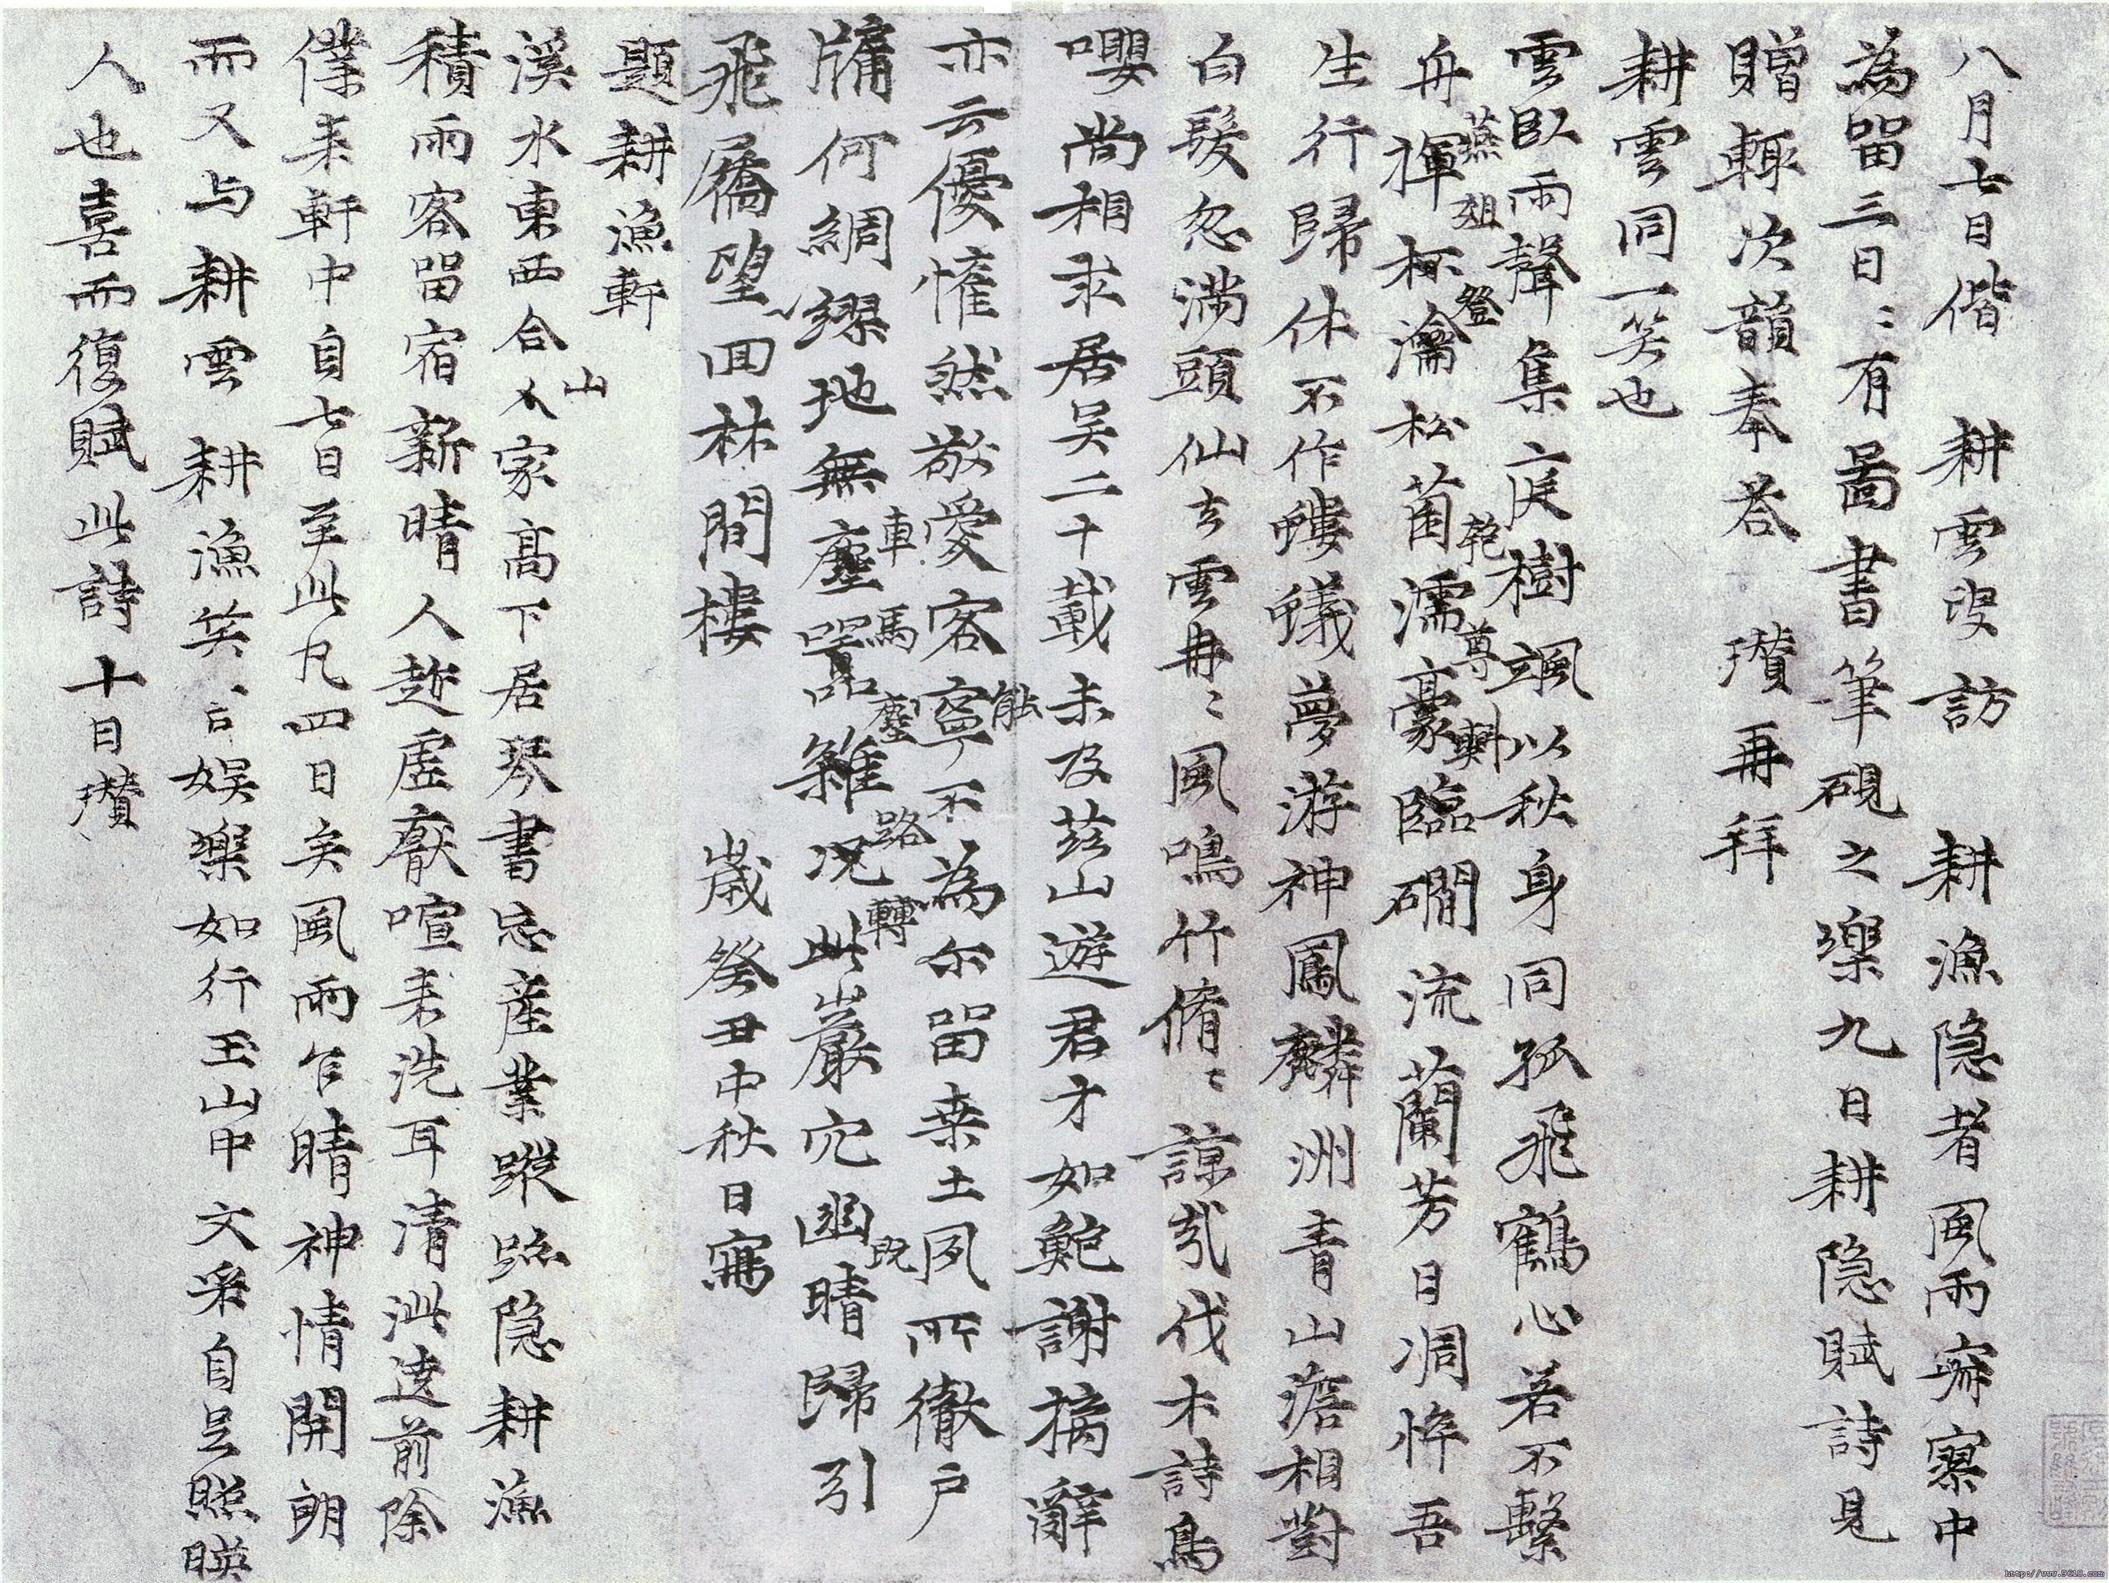 八月七日偕 耕雲叟訪 耕漁隐者風雨寂寥中
為留三日〻有圖書筆硯之樂九日耕隐賦詩見
贈輙次韻奉荅 瓚再拜
耕雲同一笑也
雲臥雨聲集庭樹颯以秋身同孤飛鶴心若不繫
舟揮杯瀹松菌濡豪臨磵流蘭芳日凋悴吾
燕俎登 乾尊斟
生行歸休不作螻蟻夢游神鳳麟洲青山澹相對
白髮忽滿頭仙去雲冉〻風鳴竹脩〻諒哉伐木詩鳥
嚶尚相求居吴二十載未及茲山遊君才如鮑謝摛辭
亦云優惟然敬愛客寧不為尔留桑土夙所徹户
能
牖何綢繆地無塵囂雜况此巖穴幽晴歸引
車馬塵路轉 既
飛屩望回林間樓 歲癸丑中秋日寫
題耕漁軒
溪水東西合人家高下居琴書忘産業蹤跡隐耕漁
山
積雨客留宿新晴人趂虛厭喧来洗耳清泚遶前除
僕来軒中自七日至此凡四日矣風雨乍晴神情開朗
而又与耕雲 耕漁笑〻言娱樂如行玉山中文采自足照映
人也喜而復賦此詩十日瓚
http://www.9610.com